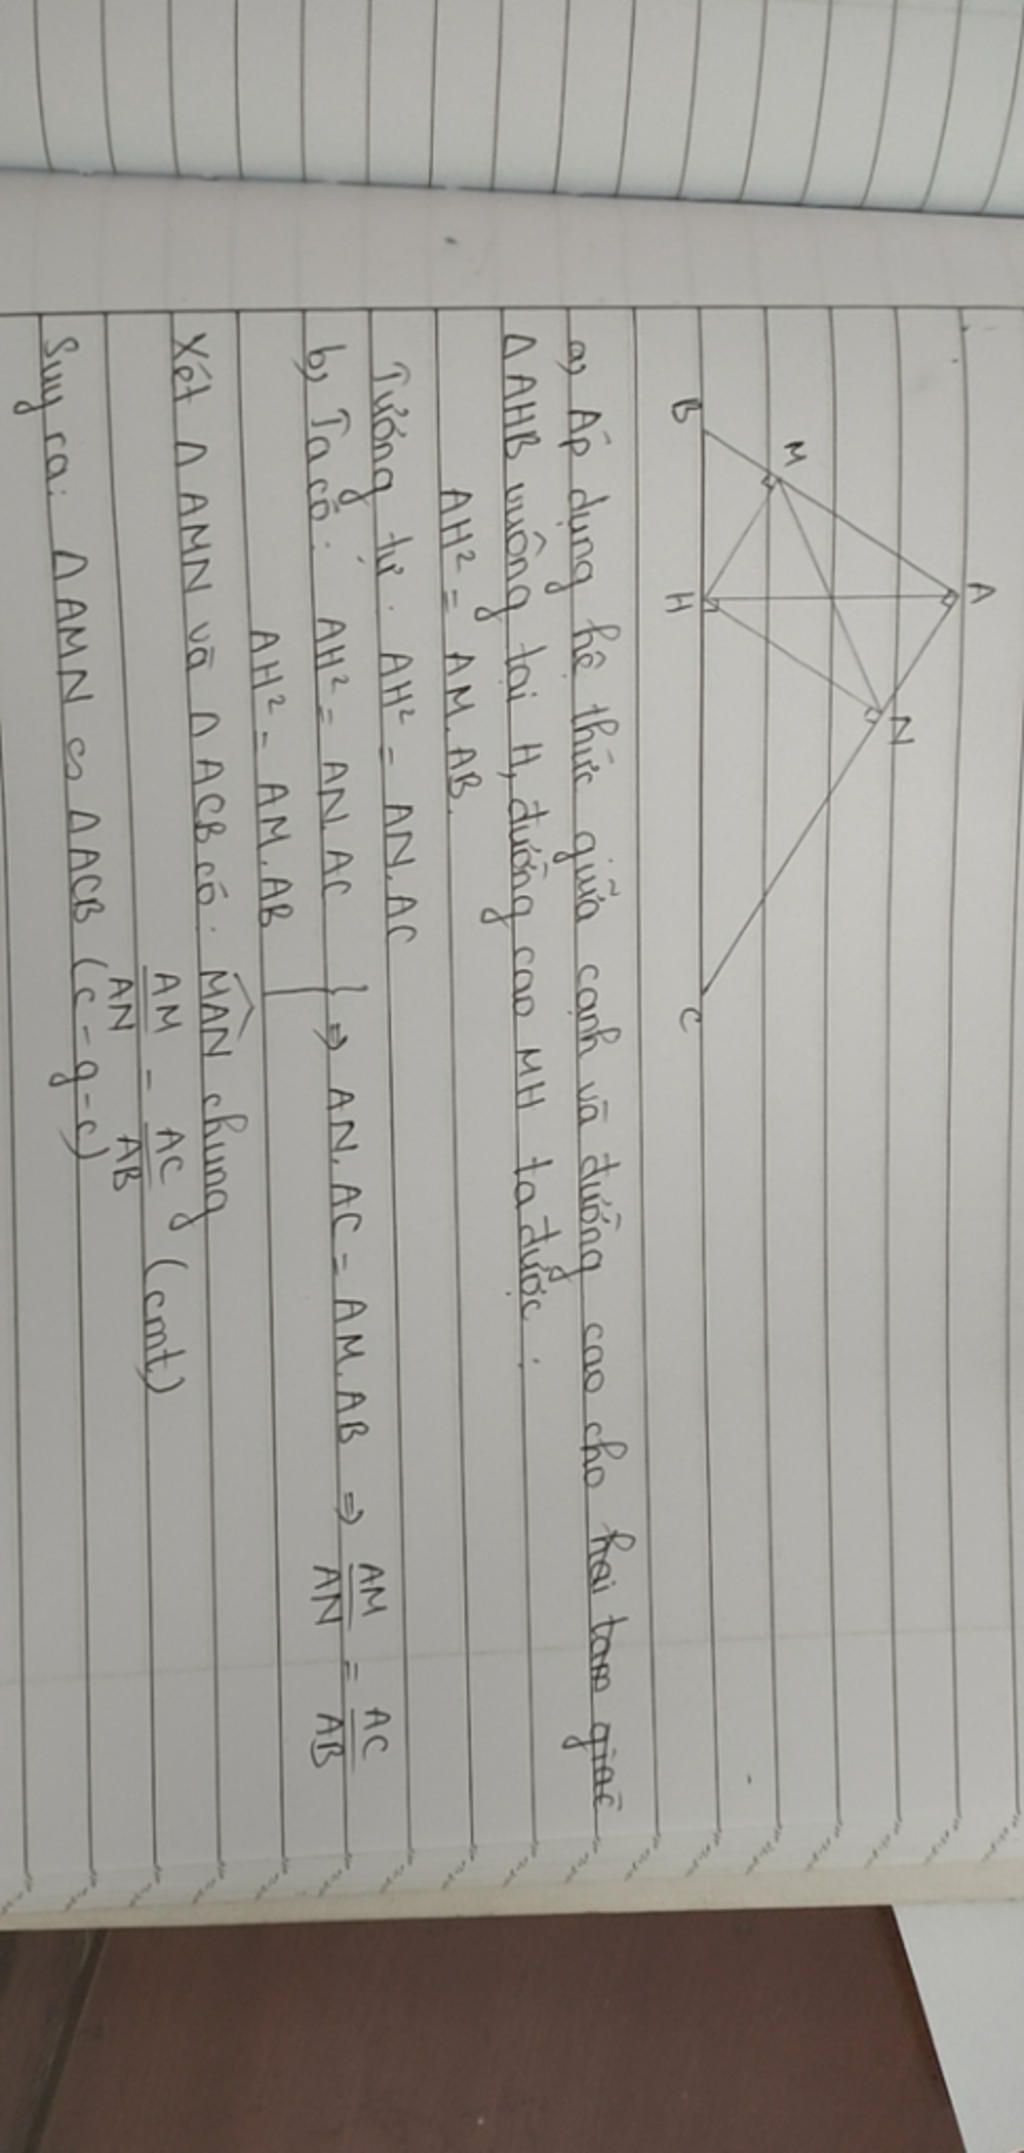 A
M
N
B
H
C
a) Áp dụng hệ thức giữa cạnh và đường cao cho hai tam giác
Δ AHB vuông tại H, đường cao MH ta được:
AH² = AM. AB.
Tương tự: AH² = AN. AC
b) Ta có: AH² = AN. AC } ⇒ AN. AC = AM. AB ⇒ AM/AN = AC/AB
AH² = AM. AB
Xét Δ AMN và Δ ACB có: MAN chung
AM/AN = AC/AB (cmt)
Suy ra: Δ AMN ∽ Δ ACB (c-g-c)